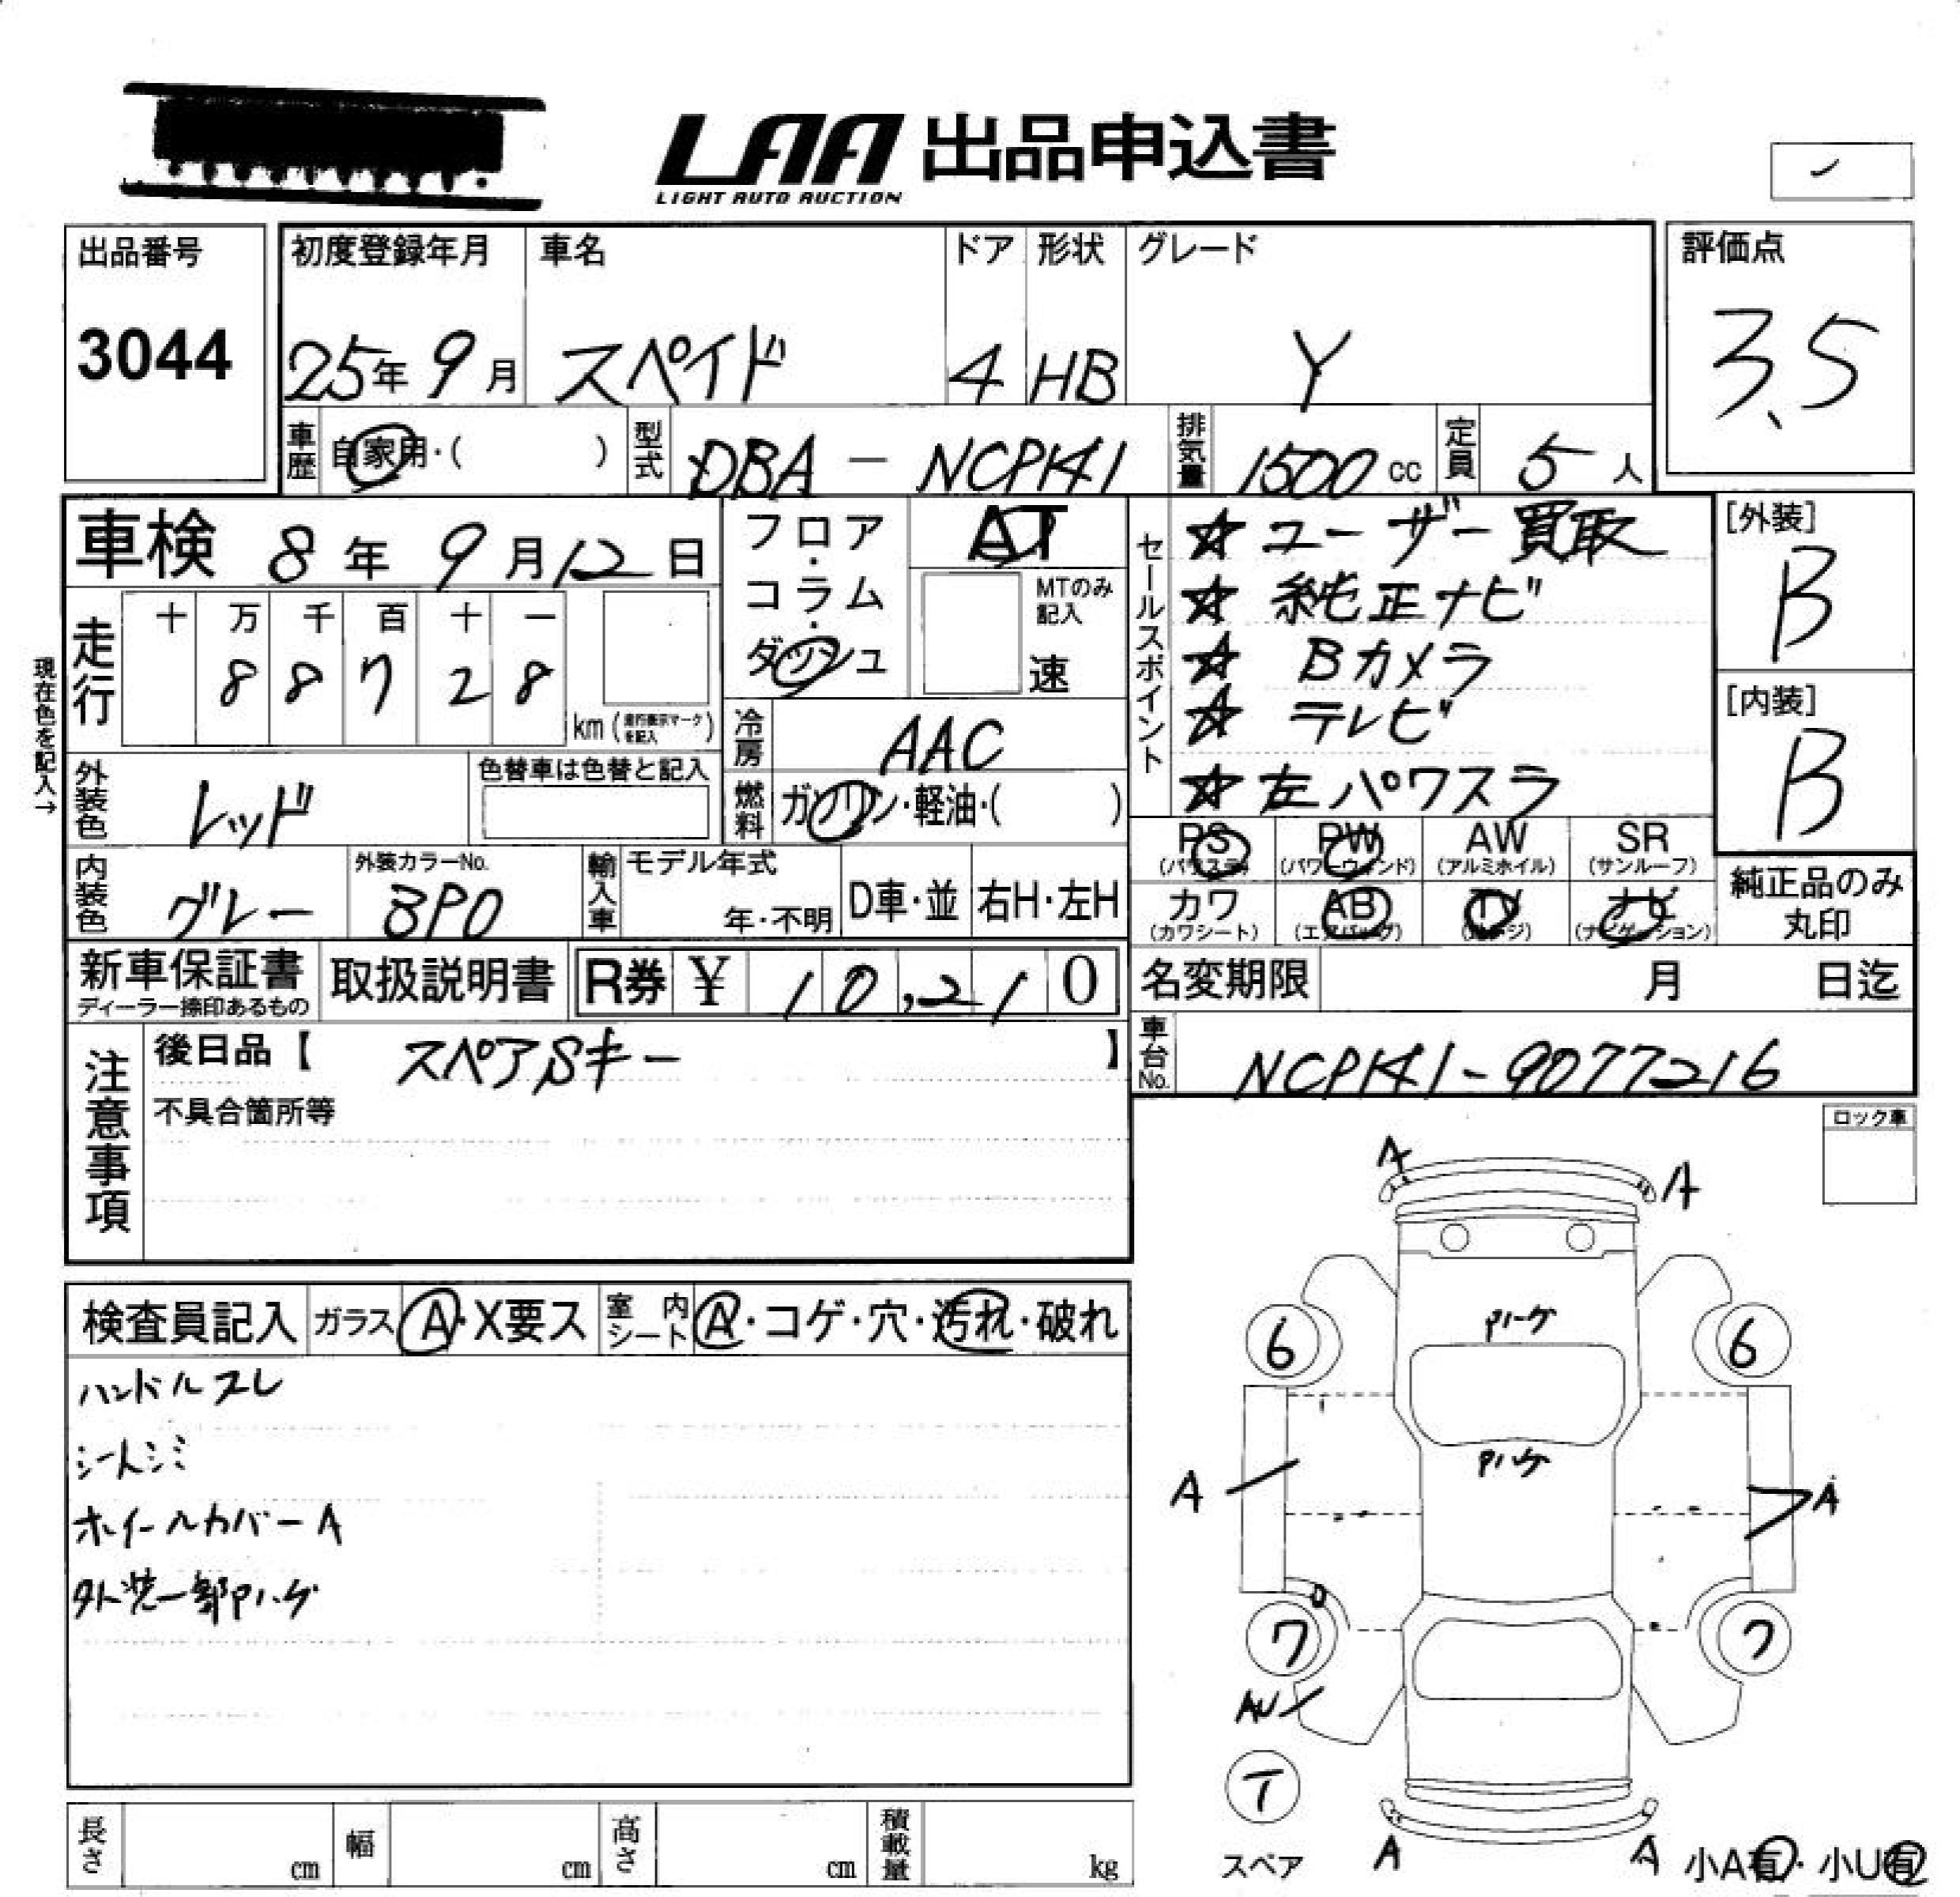 LAA 出品申込書
LIGHT AUTO AUCTION
出品番号
3044
初度登録年月
25年 9月
車名
スペイド
ドア
4
形状
HB
グレード
Y
評価点
3.5
車歴 自家用・( )
型式 DBA - NCP141
排気量 1500 cc
定員 5 人
車検 8年 9月 12日
フロア・コラム・ダッシュ
AT
MTのみ記入
速
セールスポイント
☆ ユーザー買取
☆ 純正ナビ
☆ Bカメラ
☆ テレビ
☆ 左パワスラ
[外装]
B
[内装]
B
現在色を記入→
走行
十 万 千 百 十 一
8 8 7 2 8
km (走行表示マークを記入)
冷房 AAC
燃料 ガソリン・軽油・( )
外装色 レッド
色替車は色替と記入
内装色 グレー
外装カラーNo.
3P0
輸入車 モデル年式
年・不明
D車・並
右H・左H
PS (パワステ)
PW (パワーウィンド)
AW (アルミホイル)
SR (サンルーフ)
カワ (カワシート)
AB (エアバッグ)
TV
ナビ (ナビゲーション)
純正品のみ
丸印
新車保証書
ディーラー捺印あるもの
取扱説明書
R券 ¥ 10,210
名変期限 月 日迄
車台No. NCP141-9077216
注意事項
後日品【 スペアSキー 】
不具合箇所等
ロック車
検査員記入
ガラス A・X要ス
室内シート A・コゲ・穴・汚れ・破れ
ハンドルスレ
シートシミ
ホイールカバーA
外装一部Pハゲ
A
A
Pハゲ
6
6
Pハゲ
A
A
7
7
AU
T
スペア
A
A
小A有・小U有
長さ cm
幅 cm
高さ cm
積載量 kg